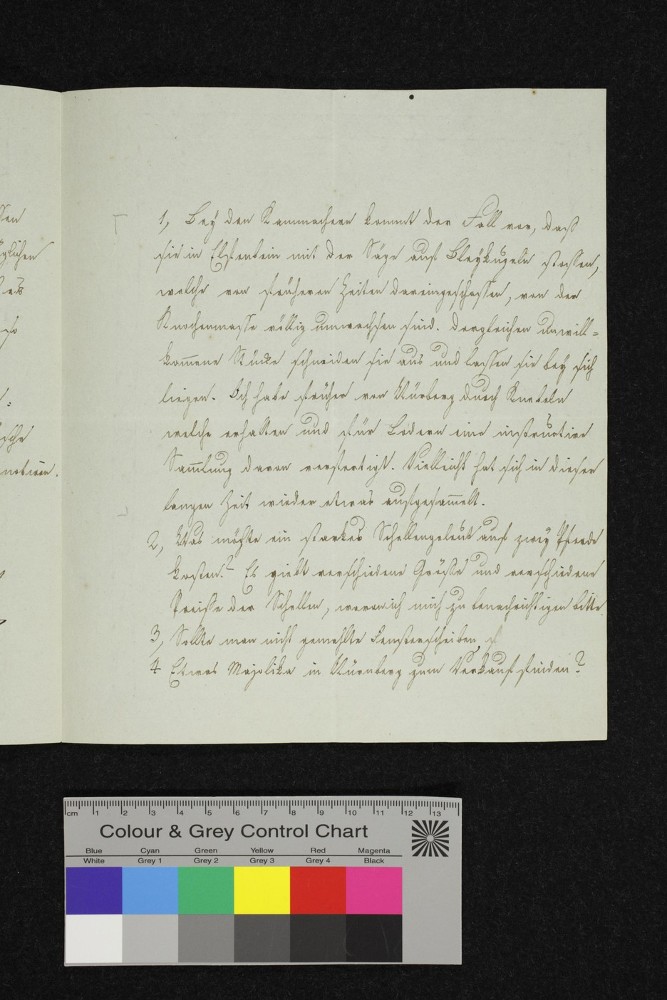 1, Bey den Kammachern kommt der Fall vor, daß
sie in Elfenbein mit der Säge auf Bleykugeln stoßen,
welche von früheren Zeiten dareingeschossen, von der
Knochenmasse völlig umwachsen sind. Dergleichen unwill-
kommene Stücke schneiden sie aus und lassen sie bey sich
liegen. Ich habe früher von Nürnberg durch Knebeln
welche erhalten und für Lodern eine instructive
Sammlung davon verfertigt. Vielleicht hat sich in dieser
langen Zeit wieder etwas aufgesammelt.
2, Was möchte ein starkes Schellengeläut auf zwey Pferde
kosten? Es giebt verschiedene Größe und verschiedene
Preiße der Schellen, wovon ich mich zu benachrichtigen bitte.
3, Sollte man nicht gemahlte Fensterscheiben,
4 Etwas Majolika in Nürnberg zum Verkauf finden?
ßen
glichen
es
notiren.
Colour & Grey Control Chart
Blue Cyan Green Yellow Red Magenta
White Grey 1 Grey 2 Grey 3 Grey 4 Black
cm 1 2 3 4 5 6 7 8 9 10 11 12 13